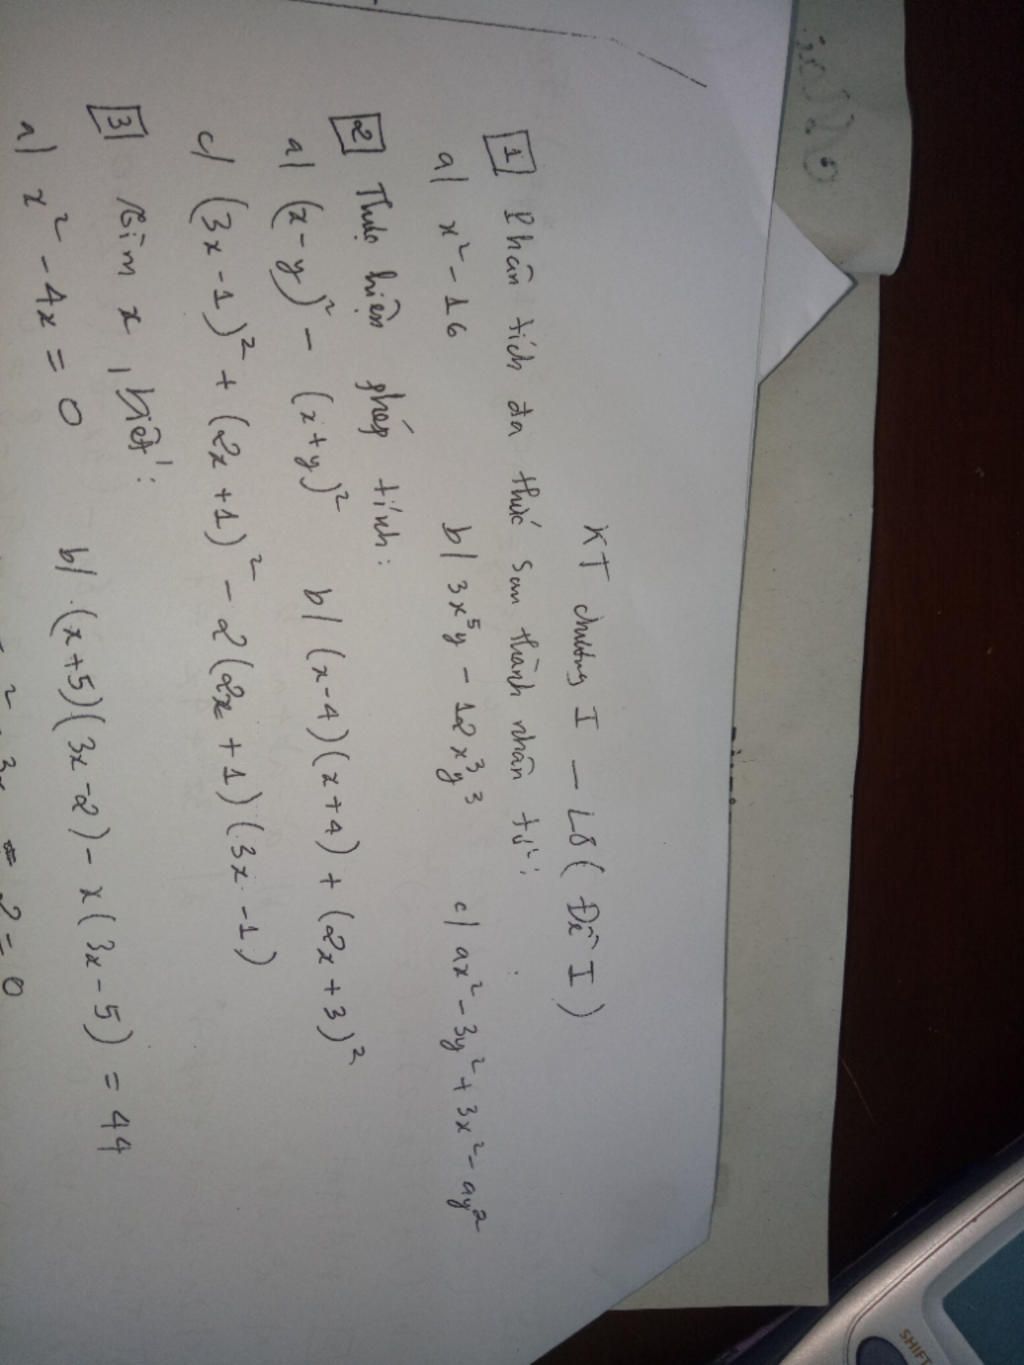 KT chương I – L8 ( Đề I )
1 Phân tích đa thức sau thành nhân tử:
a/ x² - 16 b/ 3x⁵y - 12x³y³ c/ ax² - 3y² + 3x² - ay²
2 Thực hiện phép tính:
a/ (x-y)² - (x+y)² b/ (x-4)(x+4) + (2x+3)²
c/ (3x-1)² + (2x+1)² - 2(2x+1)(3x-1)
3 Tìm x, biết:
a/ x² - 4x = 0 b/ (x+5)(3x-2) - x(3x-5) = 44
SHIFT